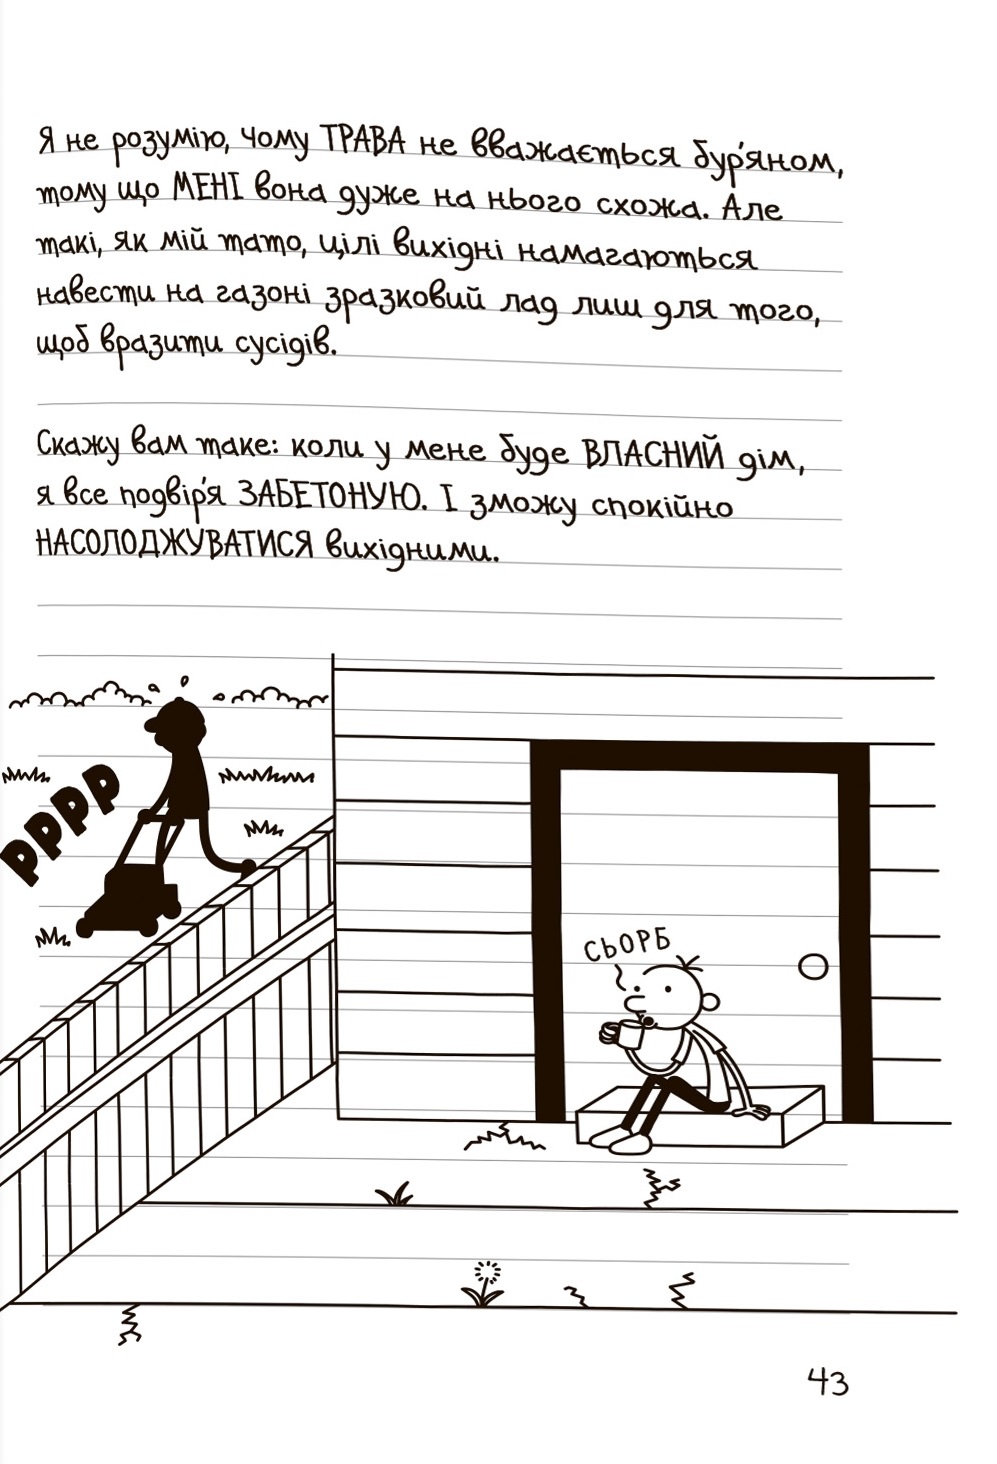 Я не розумію, чому ТРАВА не вважається бур'яном,
тому що МЕНІ вона дуже на нього схожа. Але
такі, як мій тато, цілі вихідні намагаються
навести на газоні зразковий лад лиш для того,
щоб вразити сусідів.
Скажу вам таке: коли у мене буде ВЛАСНИЙ дім,
я все подвір'я ЗАБЕТОНУЮ. І зможу спокійно
НАСОЛОДЖУВАТИСЯ вихідними.
РРРР
СЬОРБ
43